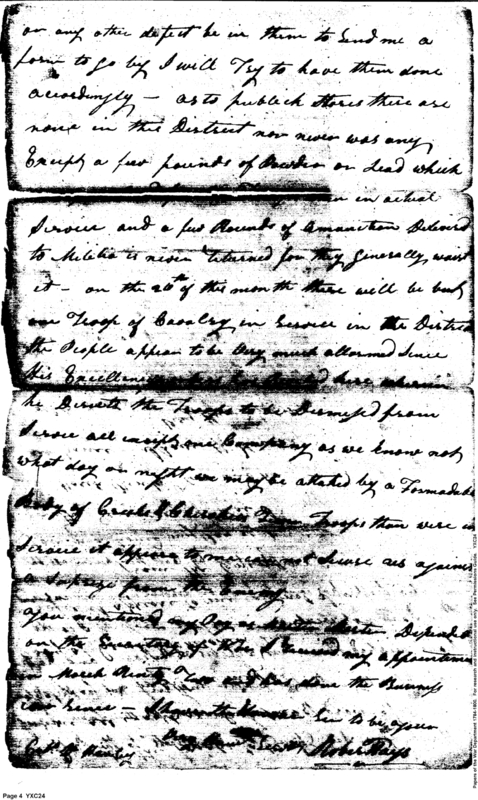 or any other defect be in them to Send me a
form to go by I will Try to have them done
accordingly — as to publick Stores there are
none in this District nor never was any
Except a few pounds of Powder or Lead which
men in actual
Service and a few Rounds of Amanition Delivered
to Militia is never returned for they generally waist
it — on the 26th of this month there will be but
one Troop of Cavalry in Service in the District
the People appear to be Very much allarmed Since
His Excellency here wherein
he Directs the Troops to be Dismissed from
Service all except one Company as we know not
what day or night we may be attaked by a Formadable
Body of Creeks & Cherokees Troops than were in
Service it appears to me not Secure us against
a Surprize from the Enemy
You mentioned my Pay as Muster Master Depended
on the Secretary of War I received my appointment
in March Ninty Two and has done the Business
ever Since — I have the Honour Sir to be your
Robert Hays
Page 4 YXC24